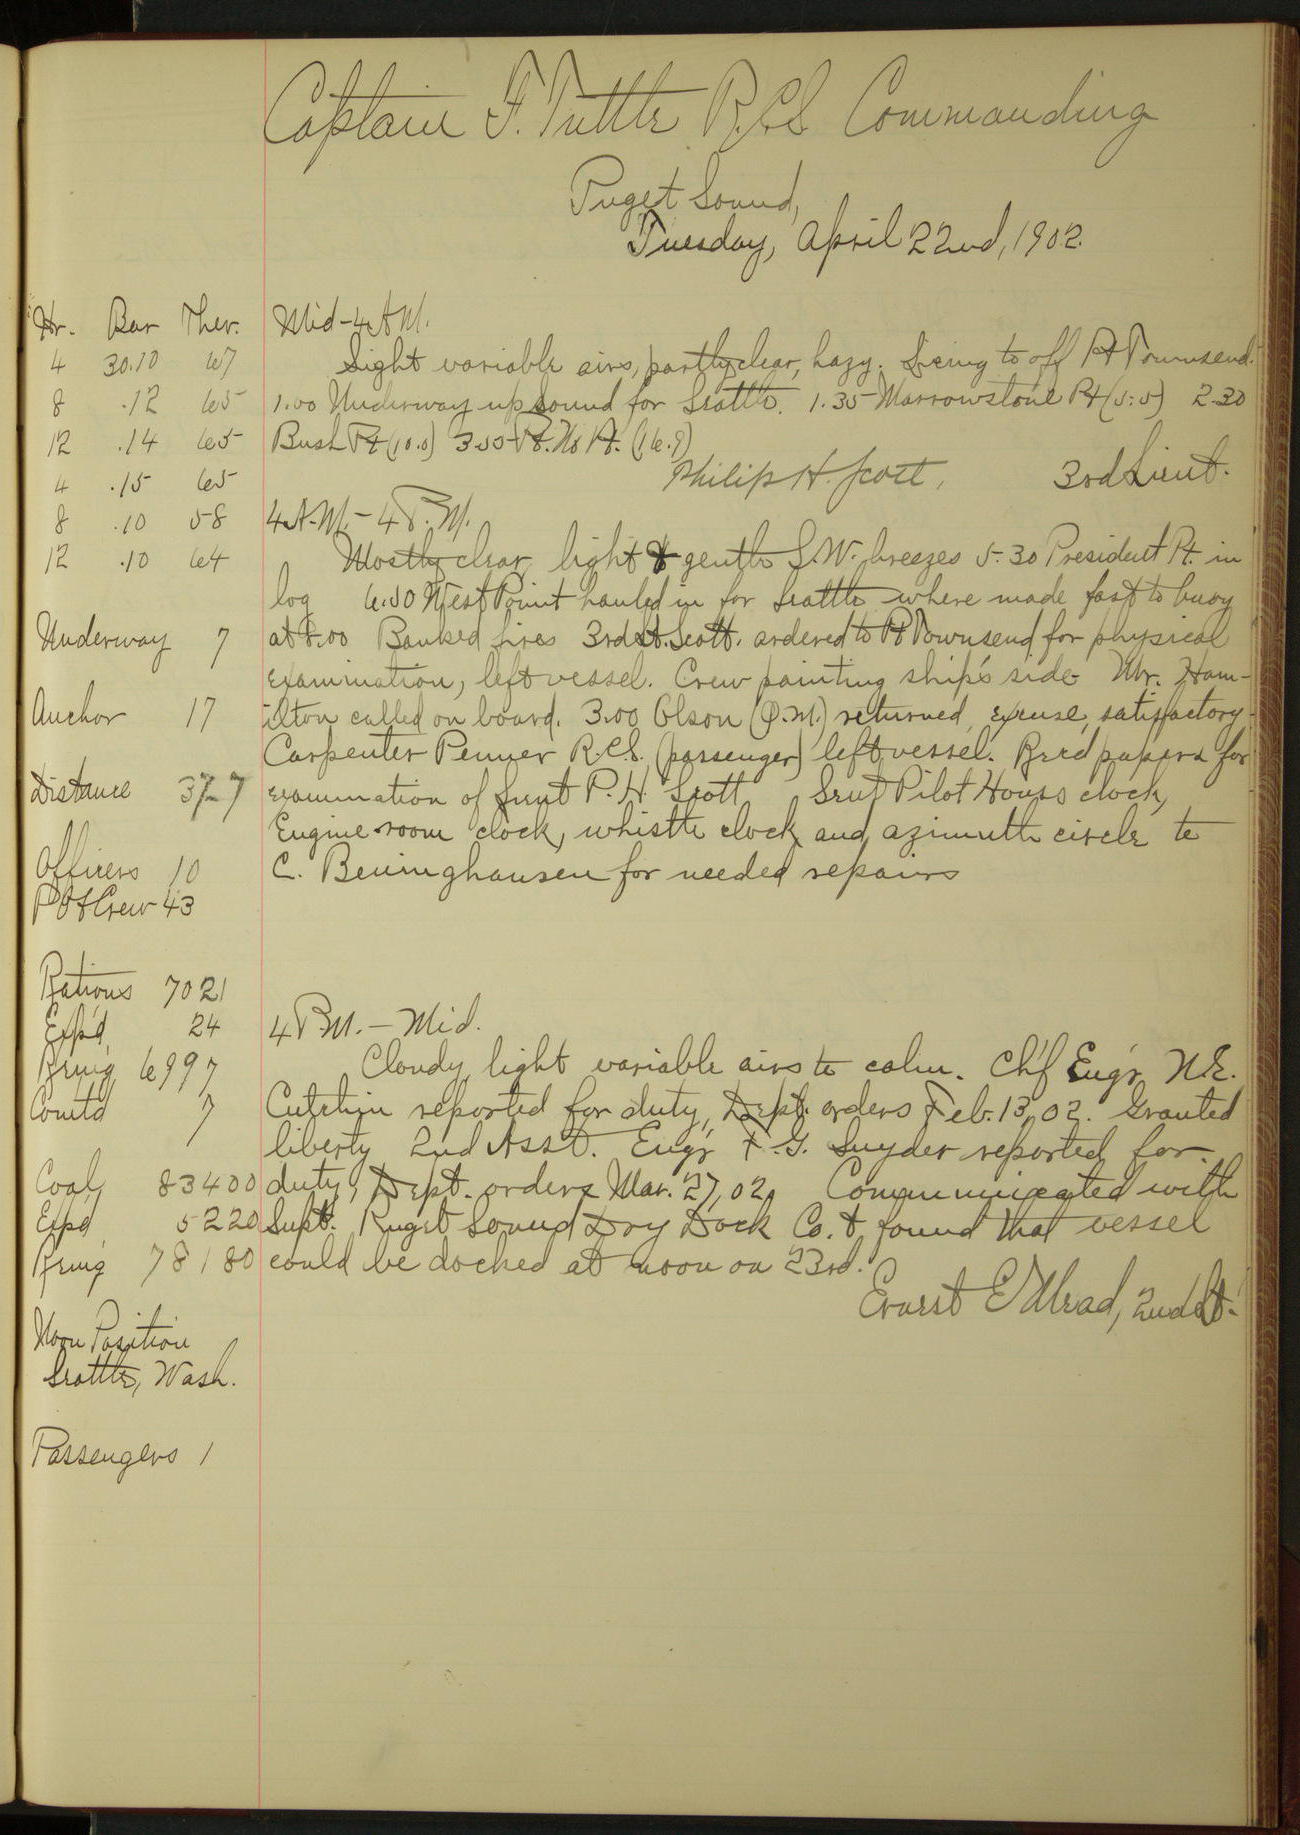 Captain F. Tuttle R.C.S. Commanding
Puget Sound,
Tuesday, April 22nd, 1902.
Hr. Bar Ther.
4 30.10 67
8 .12 65
12 .14 65
4 .15 65
8 .10 58
12 .10 64
Underway 7
Anchor 17
Distance 37.7
Officers 10
P.O.& Crew 43
Rations 7021
Exp'd 24
Rem'g 6997
Comtd 7
Coal 83400
Exp'd 5220
Rem'g 78180
Noon Position
Seattle, Wash.
Passengers 1
Mid-4 A.M.
Light variable airs, partly clear, hazy. Lying to off Pt Townsend.
1.00 Underway up Sound for Seattle. 1.35 Marrowstone Pt (5.5) 2.30
Bush Pt (10.0) 3.55 Pt. No Pt. (16.9)
Philip H. Scott, 3rd Lieut.
4 A.M. - 4 P.M.
Mostly clear, light & gentle S.W. breezes 5.30 President Pt. in
log 6.50 West Point hauled in for Seattle where made fast to buoy
at 8.00 Banked fires 3rd Lt. Scott. ordered to Pt Townsend for physical
examination, left vessel. Crew painting ship's side Mr. Ham-
ilton called on board. 3.00 Olson (Q.M.) returned, excuse, satisfactory.
Carpenter Penner R.C.S. (passenger) left vessel. Rec'd papers for
examination of Lieut P. H. Scott Sent Pilot House clock,
Engine room clock, whistle clock and azimuth circle to
C. Beninghausen for needed repairs
4 P.M. - Mid.
Cloudy, light variable airs to calm. Ch'f Eng'r N.E.
Cutchin reported for duty, Dept. orders Feb. 13, 02. Granted
liberty 2nd Asst. Eng'r F. G. Snyder reported for
duty, Dept. orders Mar. 27, 02. Communicated with
Supt. Puget Sound Dry Dock Co. & found that vessel
could be docked at noon on 23rd.
Ernest E. Mead, 2nd Lt.